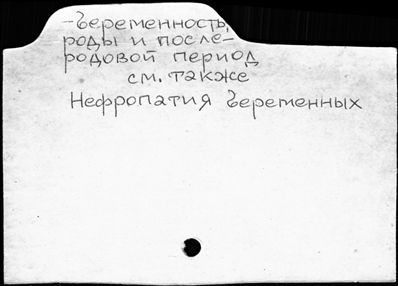 -Беременность,
роды и после-
родовой период
см. также
Нефропатия беременных